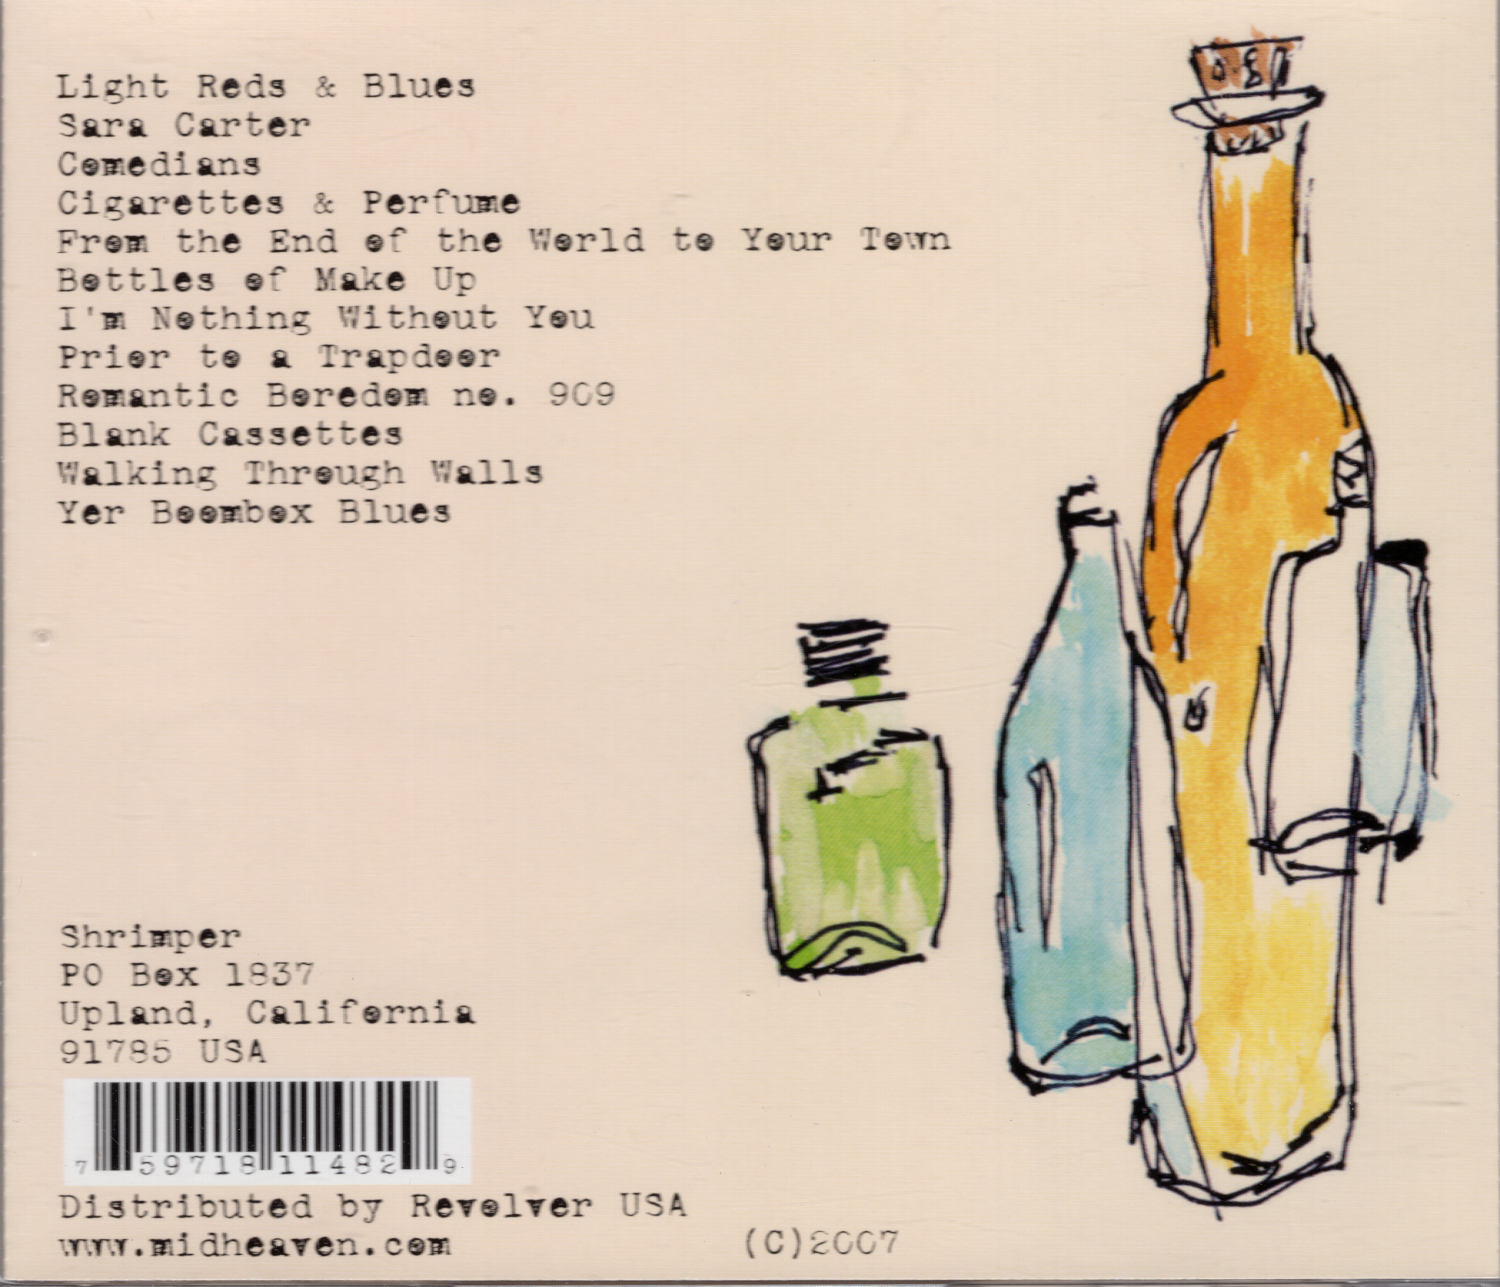 Light Reds & Blues
Sara Carter
Comedians
Cigarettes & Perfume
From the End of the World to Your Town
Bottles of Make Up
I'm Nothing Without You
Prior to a Trapdoor
Romantic Boredom no. 909
Blank Cassettes
Walking Through Walls
Yer Boombox Blues
Shrimper
PO Box 1837
Upland, California
91785 USA
7 59718 11482 9
Distributed by Revolver USA
www.midheaven.com
(C)2007